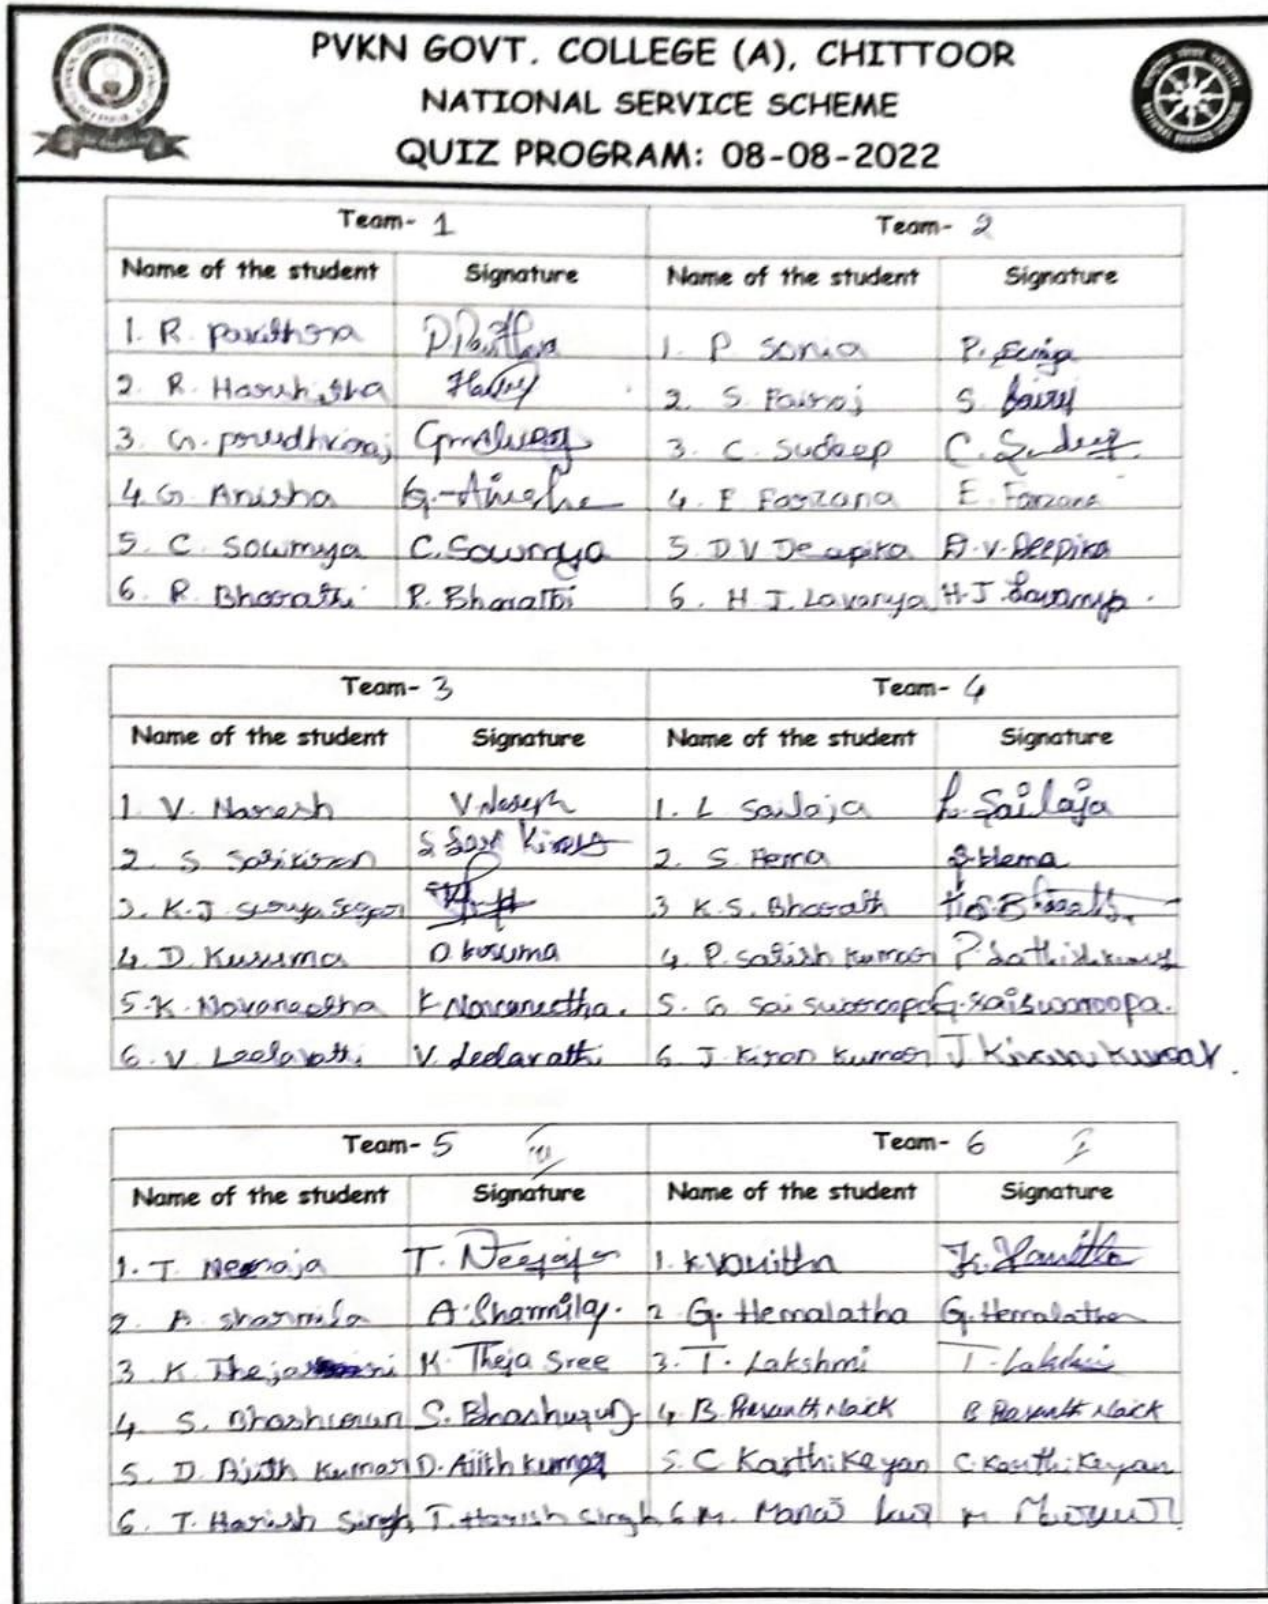 PVKN GOVT. COLLEGE (A), CHITTOOR
NATIONAL SERVICE SCHEME
QUIZ PROGRAM: 08-08-2022
NATIONAL SERVICE SCHEME
Team- 1 Team- 2
Name of the student Signature Name of the student Signature
1. R. Pavithra 1. P Sonia P.
2. R. Harshitha 2. S. Fairoj S.
3. G. 3. C. Sudeep C. Sudeep
4. G. Anisha G. Anisha 4. E Farzana E. Farzana
5. C. Sowmya C. Sowmya 5. D.V Deepika D.V. Deepika
6. R. Bharathi R. Bharathi 6. H. J. Lavanya H.J. Lavanya
Team- 3 Team- 4
Name of the student Signature Name of the student Signature
1. V. Naresh V. Naresh 1. L Sailaja L. Sailaja
2. S Saikiran S. Sai Kiran 2. S. Hema S. Hema
3. K.J Surya Sagar 3 K.S. Bharath K.S. Bharath
4. D. Kusuma D. Kusuma 4. P. Satish Kumar P Sathish kumar
5. K. Navaneetha K Navaneetha. 5. G Sai Swaroopa G. Saiswaroopa.
6. V. Leelavathi V. Leelavathi 6. J. Kiran Kumar J. Kiran Kumar
Team- 5 Team- 6
Name of the student Signature Name of the student Signature
1. T. Neeraja T. Neeraja 1. K Vanitha K. Vanitha
2. A Sharmila A. Sharmila. 2 G. Hemalatha G. Hemalatha
3. K. K. Theja Sree 3. T. Lakshmi T. Lakshmi
4 S. S. 4. B. Prasanth Naick B Prasanth Naick
5. D. Ajith Kumar D. Ajith kumar 5. C Karthikeyan C. Karthikeyan
6. T. Harish Singh T. Harish Singh 6 M. M.